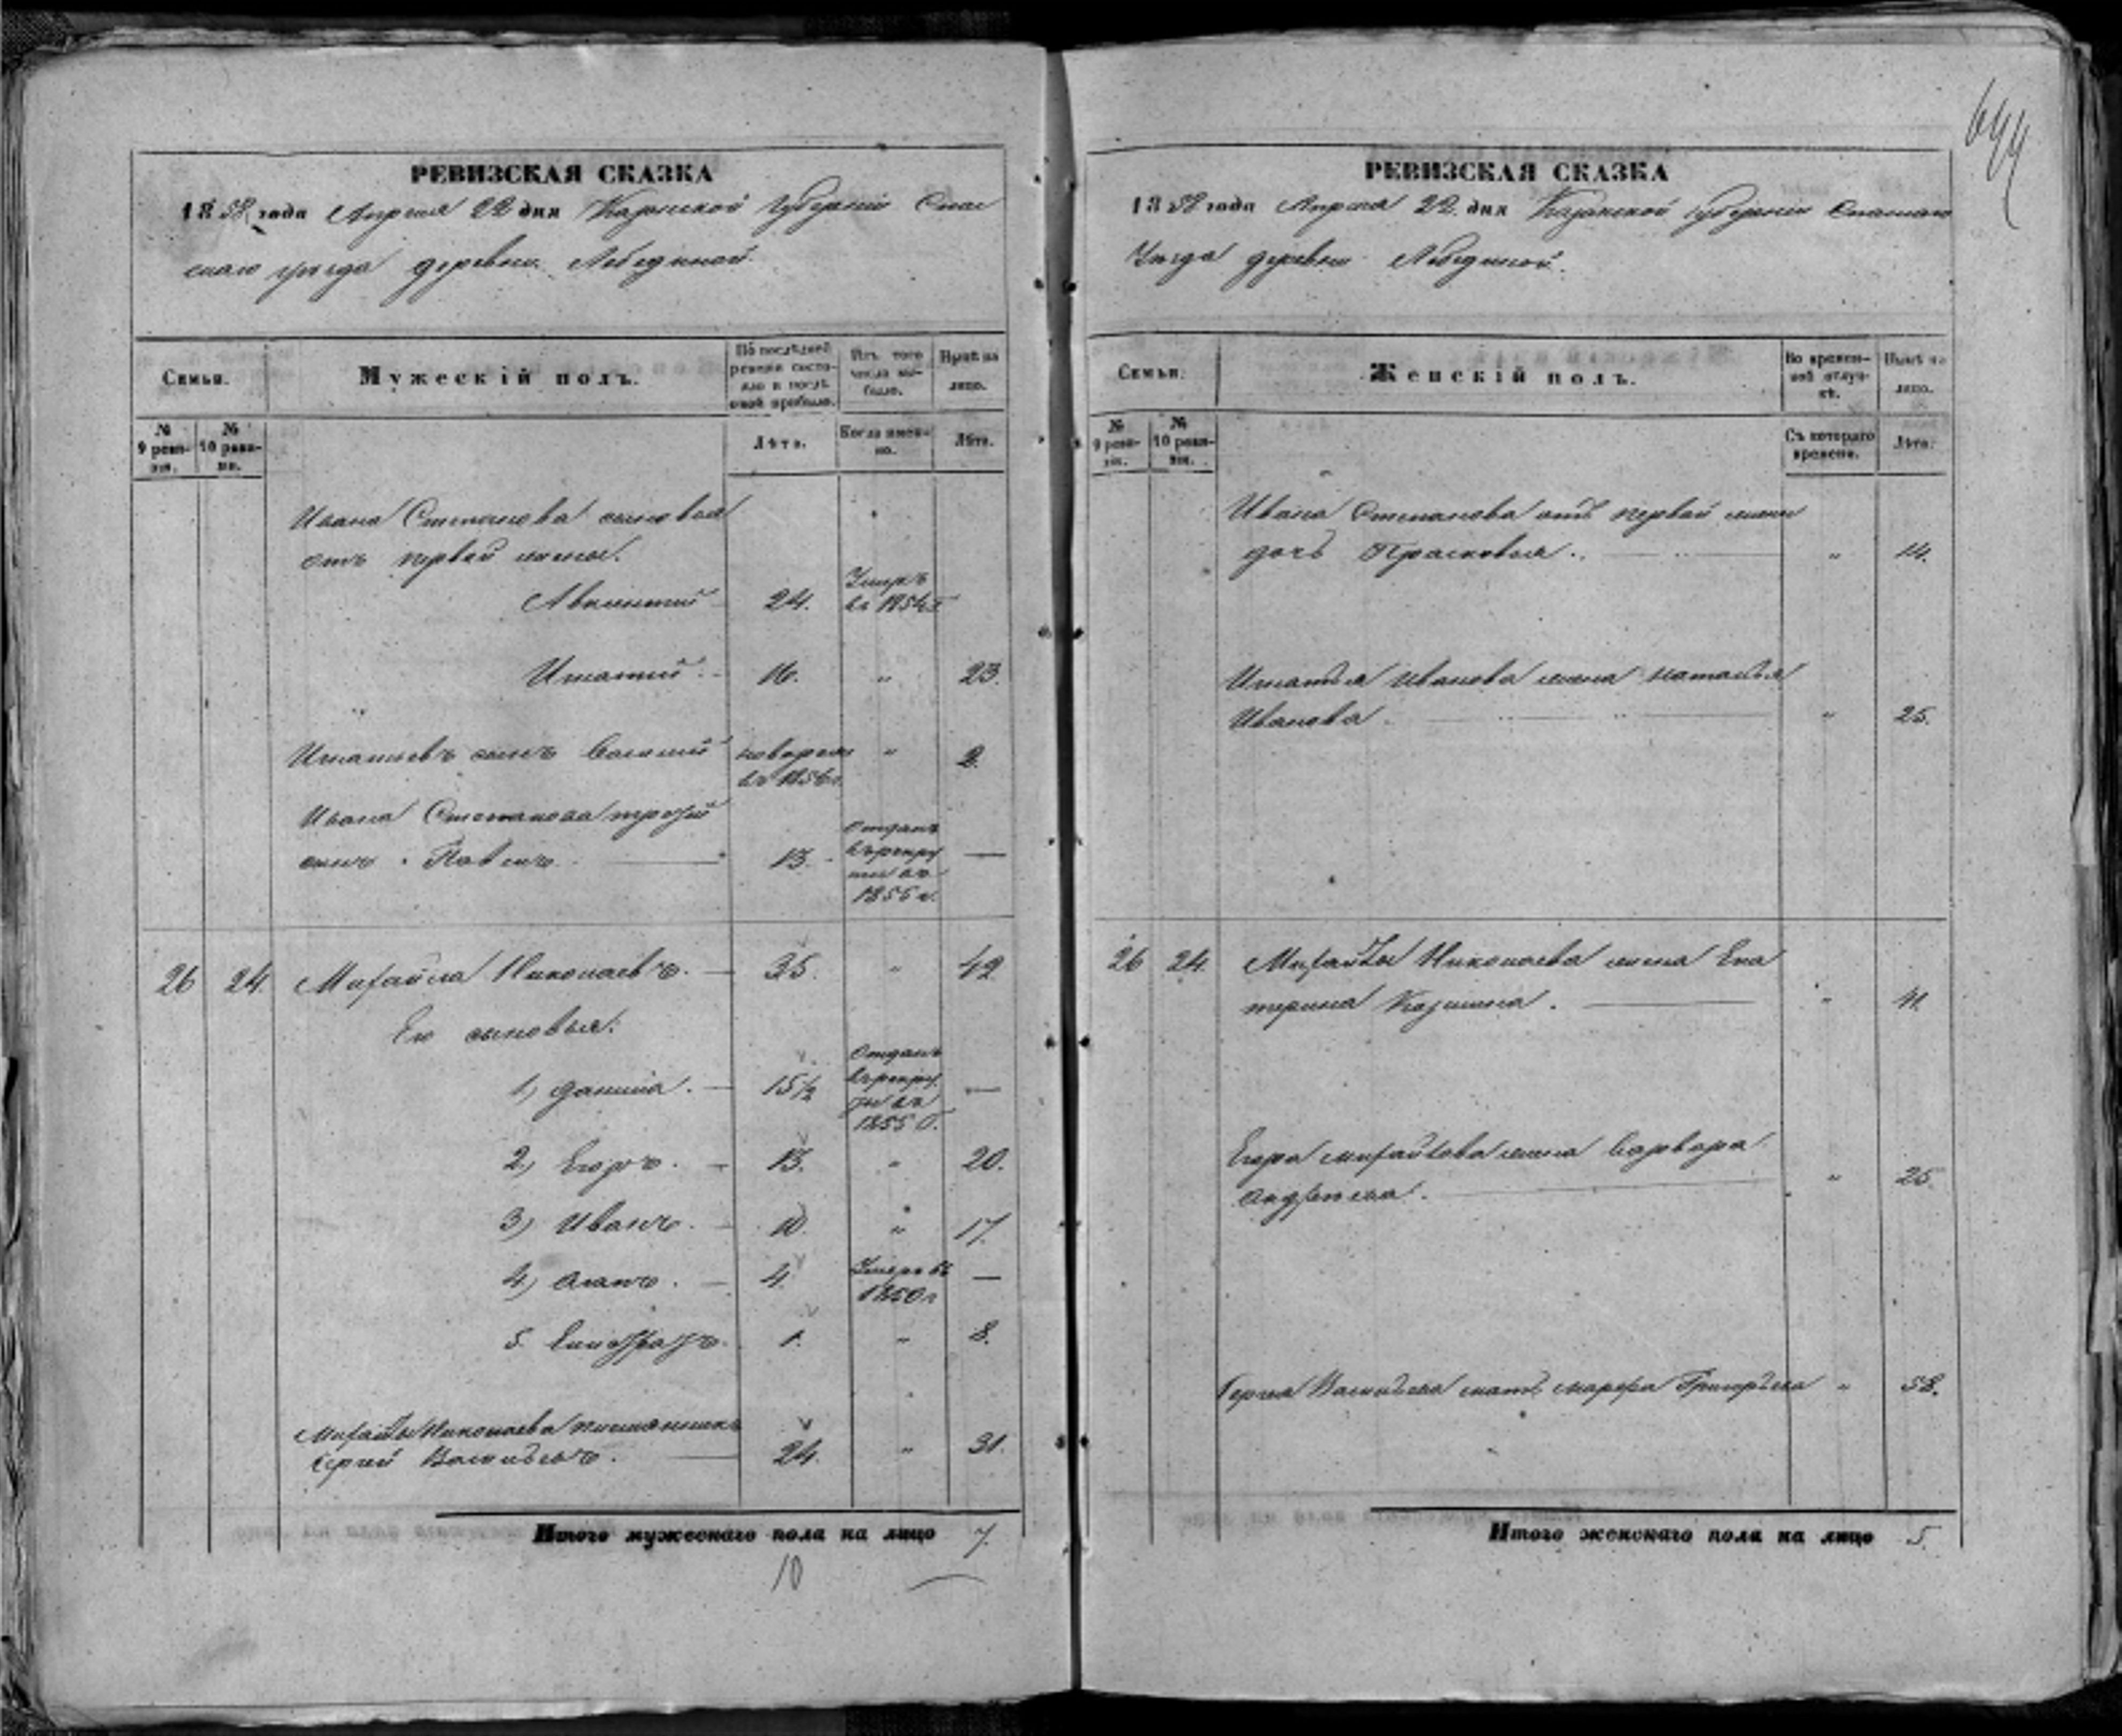 644
РЕВИЗСКАЯ СКАЗКА
1858 года Апреля 22 дня Казанской Губернiи Спас
скаго уѣзда деревни Лебединой.
Семьи.
Мужескiй полъ.
По послѣдней ревизiи состояло и послѣ оной прибыло.
Изъ того числа выбыло.
Нынѣ на лицо.
№ 9 ревизiи.
№ 10 ревизiи.
Лѣта.
Когда именно.
Лѣта.
Ивана Степанова сыновья
отъ первой жены.
24.
Умеръ
въ 1854 г
Игнатiй. 16. " 23.
Игнатьевъ сынъ Василiй новорож " 2.
въ 1856 г.
Ивана Степанова третiй
сынъ Павелъ. 13. —
Отданъ
въ рекру
ты въ
1855 г.
26 24. Михайла Николаевъ. — 35. " 42.
Его сыновья:
1, Данила. — 15½ —
Отданъ
въ рекру
ты въ
1855 г.
2, Егоръ. — 13. " 20.
3) Иванъ. — 10. " 17.
4, — 4. Умеръ въ —
1850 г
5. 1. " 8.
Михайлы Николаева племянникъ
Сергѣй Васильевъ. — 24. " 31.
Итого мужескаго пола на лицо 7.
10
РЕВИЗСКАЯ СКАЗКА
1858 года Апреля 22 дня Казанской губернiи Спаскаго
Уѣзда деревни Лебединой.
Семьи.
Женскiй полъ.
Во временной отлучкѣ.
Нынѣ на лицо.
№ 9 ревизiи.
№ 10 ревизiи.
Съ котораго времени.
Лѣта.
Ивана Степанова отъ первой жены
дочь Прасковья. " 14.
Игнатья Иванова жена Наталья
Иванова. " 25.
26 24. Михайлы Николаева жена Ека
терина " 41.
Егора Михайлова жена Варвара
Андреева. " 25.
Сергѣя Васильева мать Марфа Григорьева " 58.
Итого женскаго пола на лицо 5.